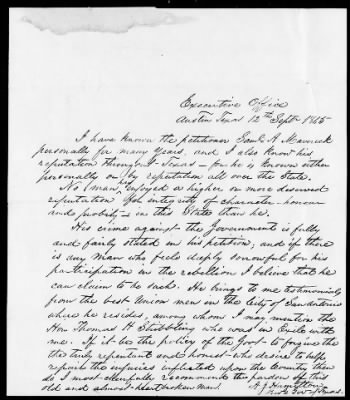 Executive Office
Austin Texas 12th Septr 1865
I have known the petitioner Saml A Maverick
personally for many years, and I also know his
reputation throughout Texas — for he is known either
personally or by reputation all over the State.
No man has enjoyed a higher or more deserved
reputation for integrity of character — honour
and probity — in this State than he.
His crime against the Government is fully
and fairly stated in his petition, and if there
is any man who feels deeply sorrowful for his
participation in the rebellion I believe that he
can claim to be such. He brings to me testimonials
from the best Union men in the City of San Antonio
where he resides, among whom I may mention the
Hon. Thomas H Stribbling who was in Exile with
me. If it be the policy of the Govt to forgive the
the truly repentant and honest who desire to help
repair the injuries inflicted upon the Country then
do I most cheerfully recommend the pardon of this
old and almost heart broken man.
A J Hamilton
Prov Gov of Texas.